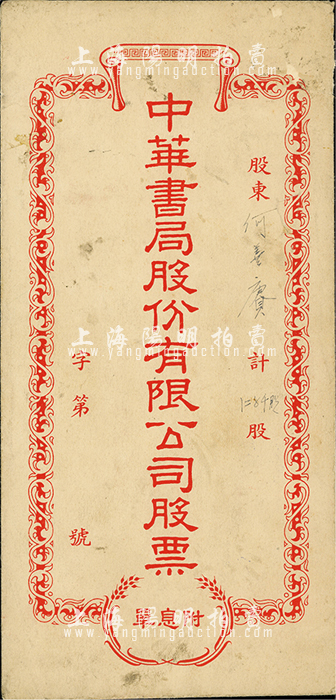 股東 何 賡 計 股
中華書局股份有限公司股票
字第 號
附息單
上海陽明拍賣
www.yangmingauction.com
上海陽明拍賣
www.yangmingauction.com
上海陽明拍賣
www.yangmingauction.com